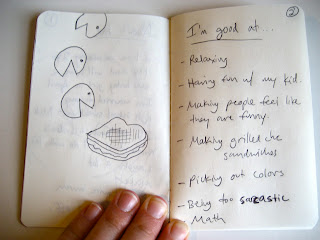 1
2
I'm good at...
- Relaxing
- Having fun w/ my kid.
- Making people feel like
they are funny.
- Making grilled che
sandwiches
- Picking out colors
- Being too sarcastic
- Math